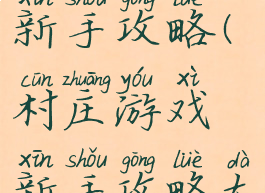 xīn shǒu gōng lüè
新手攻略(
cūn zhuāng yóu xì
村庄游戏
xīn shǒu gōng lüè dà
新手攻略大